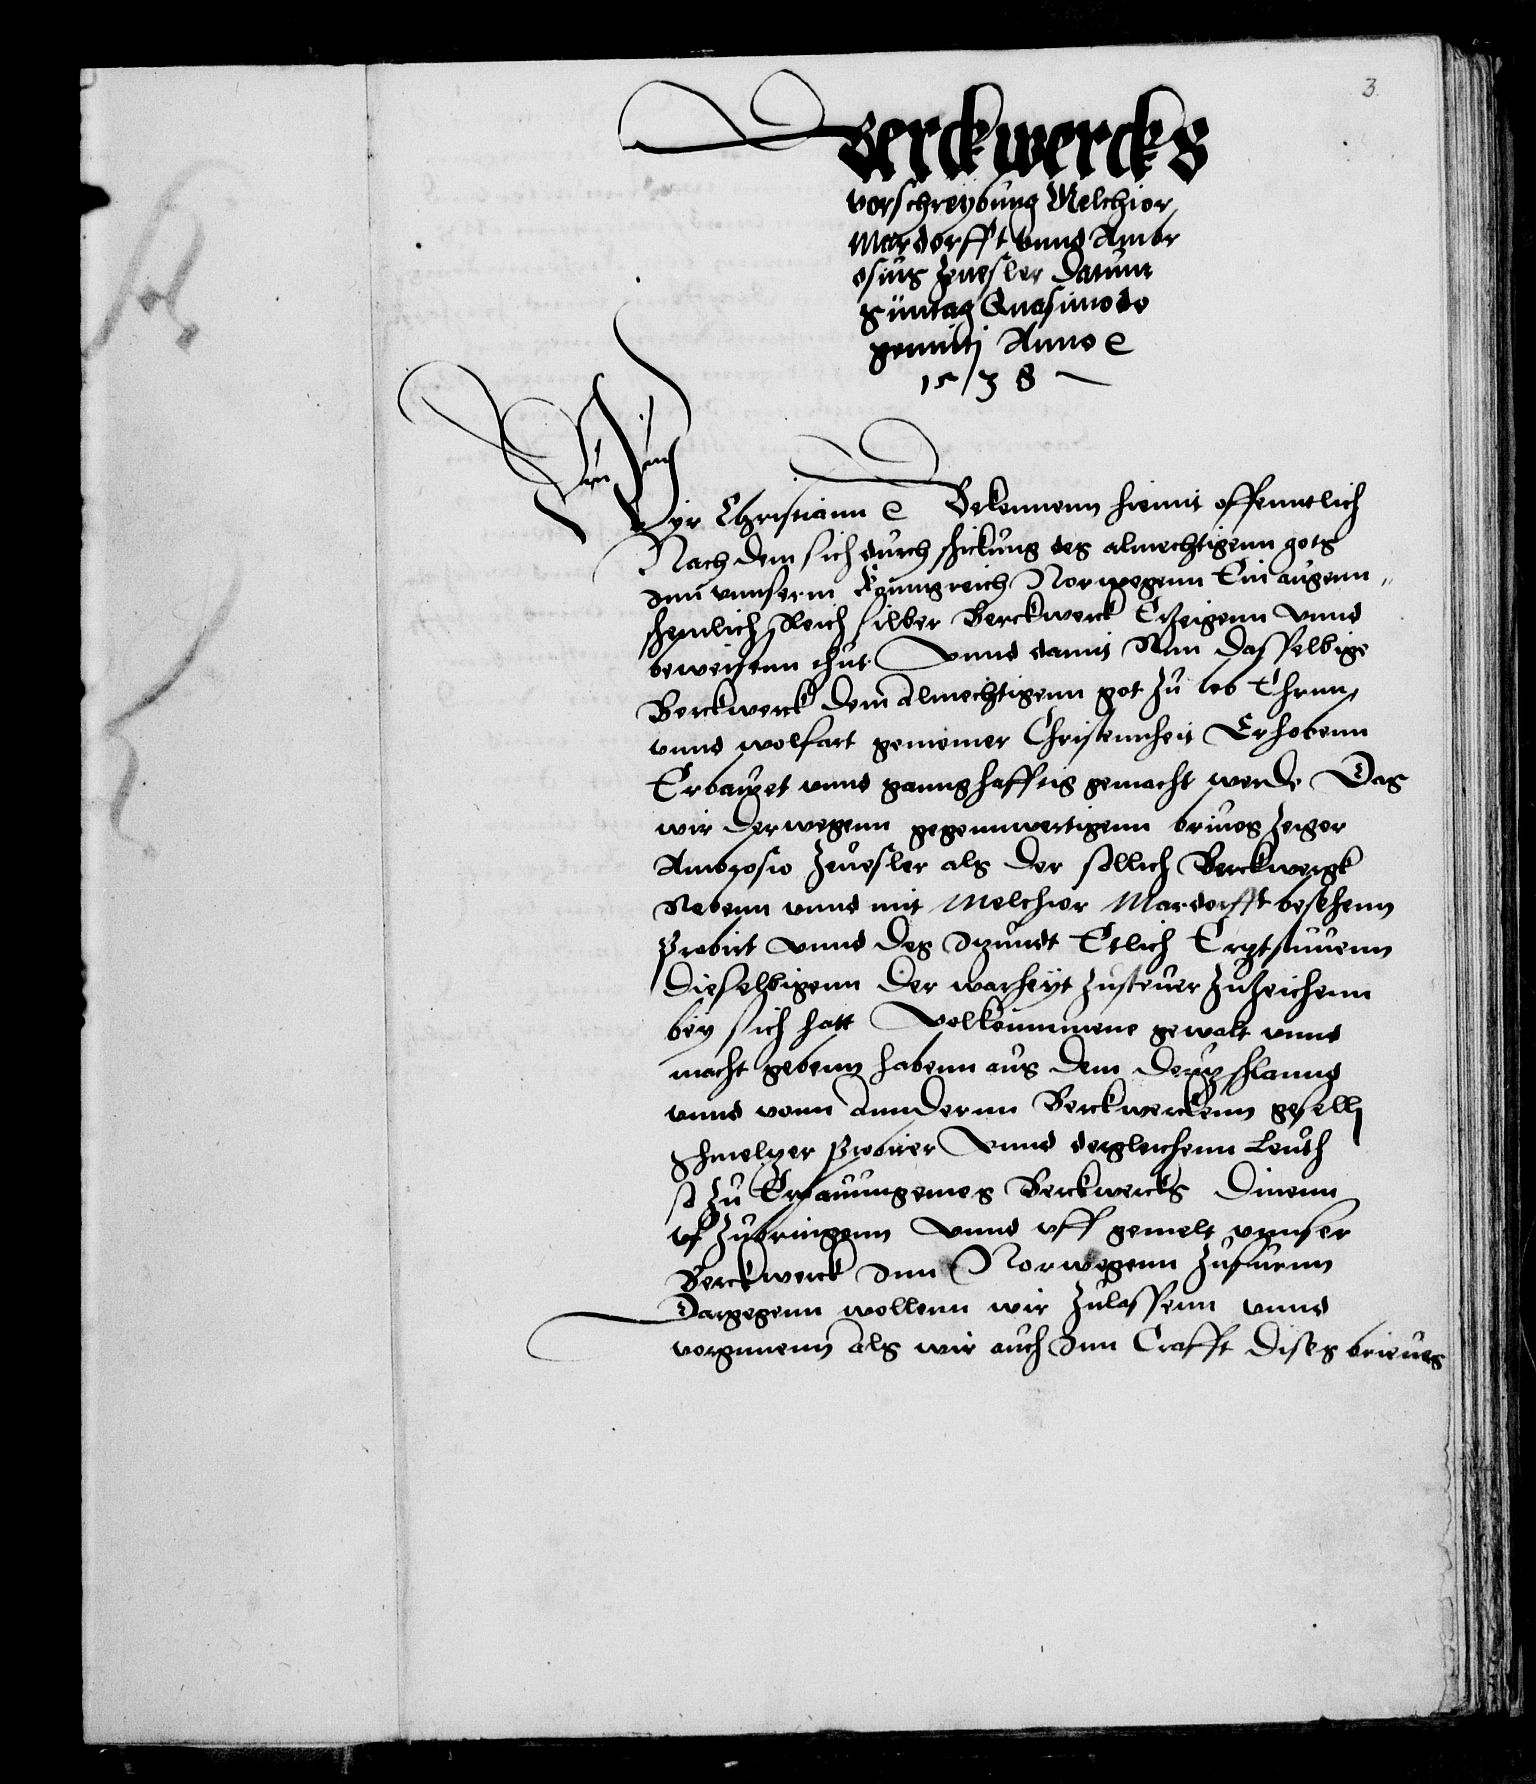 3.
Berckwercks
vorschreybung Melchior
Mardorfft vnnd Ambr
osius Zeuesler Datum
Suntag Quasimodo
geniti Anno e
1538
Wyr Christiann e Bekennenn hiemit offenntlich
Nach dem sich durch schickung des almechtigenn gots
Inn vnnserm Kunigreich Norwegenn Ein augenn„
schenlich Reich silber Berckwerck Erzeigenn vnnd
beweisenn thut Vnnd damit Nun dasselbige
Berckwerck dem Almechtigenn got zu lob Ehrnn
vnnd wolfart gemeiner Christennheit Erhobenn
Erbawet vnnd gannghafftig gemacht werde Das
wir derwegenn gegennwertigenn briues zeiger
Ambrosio Zeuesler als der sollich Berckwergk
Nebenn vnnd mit Melchior Mardorfft besehenn
Probirt Vnnd des Itzundt Etlich Ertzstuuenn
dieselbigenn der warheyt zusteuer zuzeichenn
bey sich hatt Volkummene gewalt vnnd
macht gebenn habenn aus dem Deutzschlannd
vnnd vonn Annderenn Berckwerckenn geselln
Schmelzer Probirer Vnnd dergleichenn Leuth
so zu Erbauung eines Berckwercks Dinenn
vf zubringenn Vnnd vff gemelt vnnser
Berckwerck Inn Norwegenn zufurnn
Dargegenn wollenn wir zulassenn vnnd
vorgunnenn Als wir auch Inn Crafft dises brieues